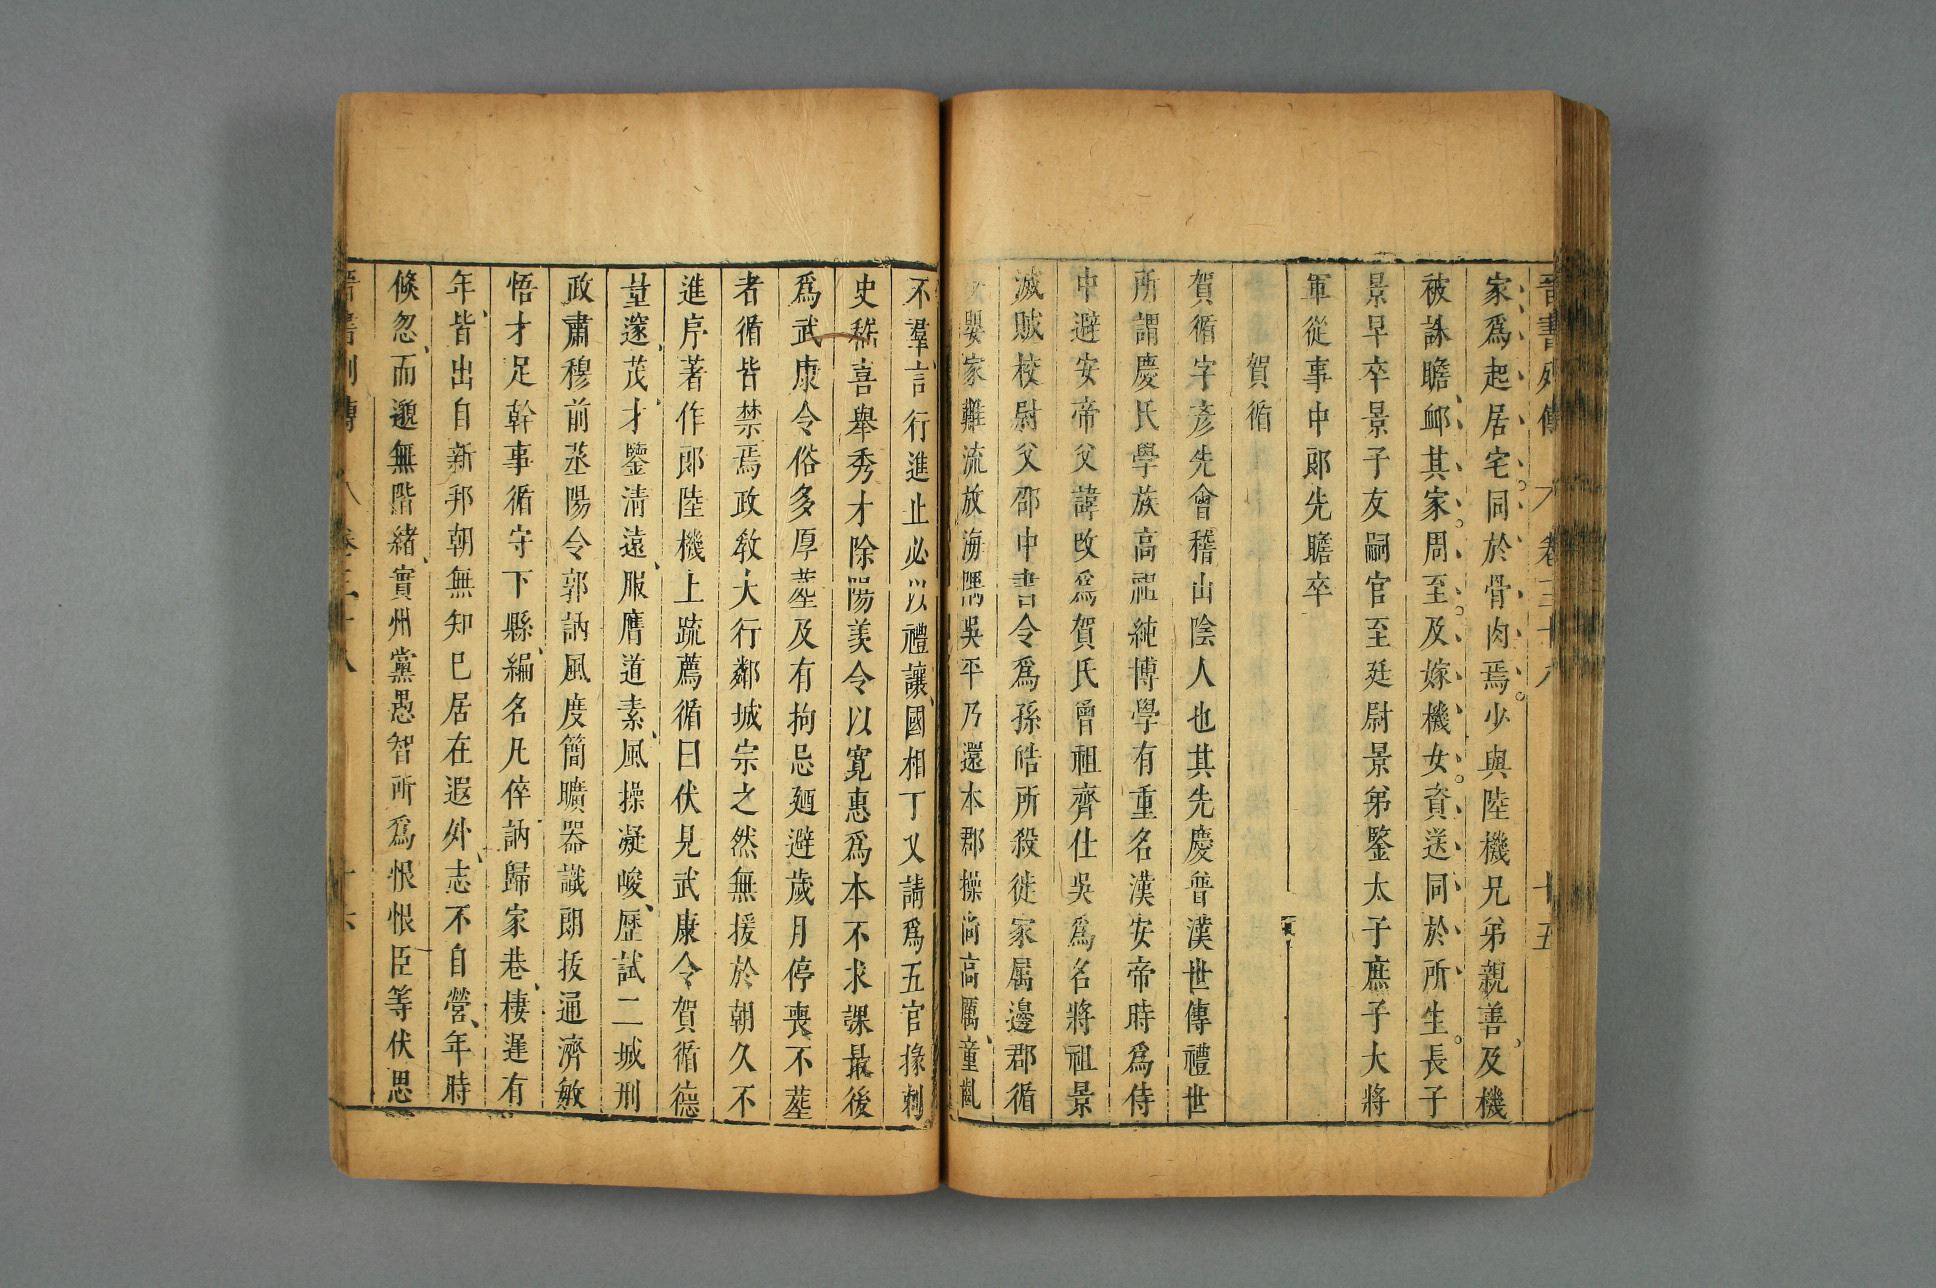 晉書列傳 卷三十八 十五
家爲起居宅同於骨肉焉少與陸機兄弟親善及機
被誅瞻卹其家周至及嫁機女資送同於所生長子
景早卒景子友嗣官至廷尉景弟鑒太子庶子大將
軍從事中郞先瞻卒
賀循
賀循字彥先會稽山陰人也其先慶普漢世傳禮世
所謂慶氏學族高祖純博學有重名漢安帝時爲侍
中避安帝父諱改爲賀氏曾祖齊仕吳爲名將祖景
滅賊校尉父邵中書令爲孫皓所殺徙家屬邊郡循
少嬰家難流放海隅吳平乃還本郡操尚高厲童齔
不羣言行進止必以禮讓國相丁乂請爲五官掾刺
史嵇喜舉秀才除陽羨令以寬惠爲本不求課最後
爲武康令俗多厚葬及有拘忌廻避歲月停喪不葬
者循皆禁焉政敎大行鄰城宗之然無援於朝久不
進序著作郞陸機上疏薦循曰伏見武康令賀循德
量邃茂才鑒淸遠服膺道素風操凝峻歷試二城刑
政肅穆前蒸陽令郭訥風度簡曠器識朗拔通濟敏
悟才足幹事循守下縣編名凡倅訥歸家巷棲遲有
年皆出自新邦朝無知己居在遐外志不自營年時
倏忽而邈無階緒實州黨愚智所爲恨恨臣等伏思
晉書列傳 卷三十八 十六